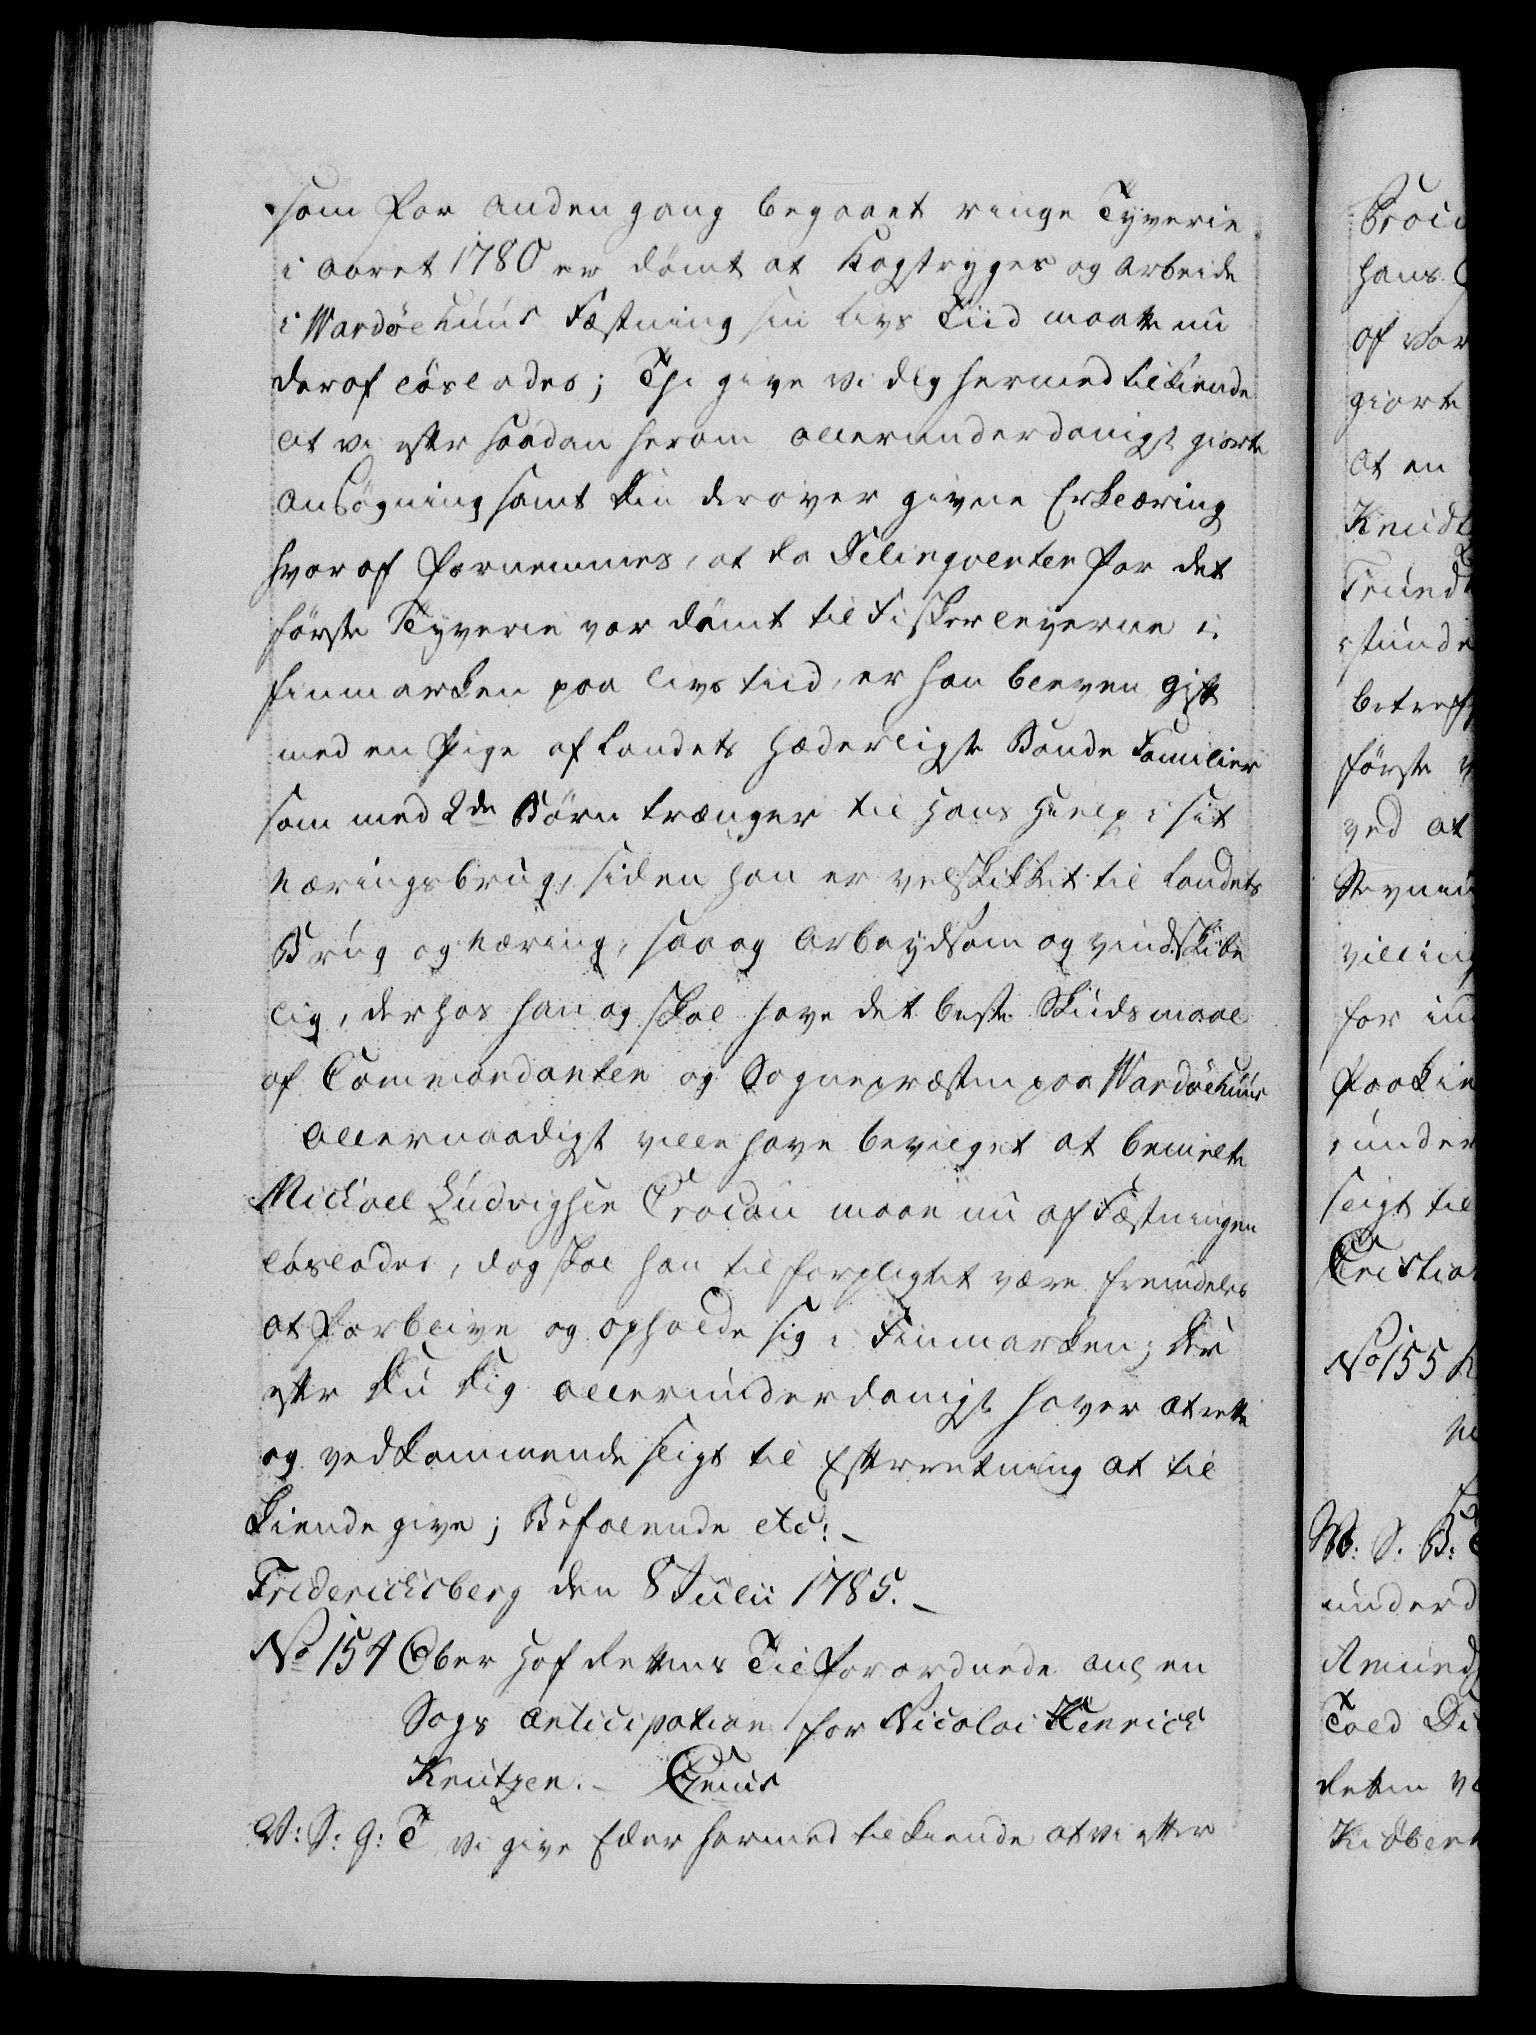 som for anden gang begaaet ringe Tyverie
i aaret 1780 er dömt at Kagstryges og arbeide
i Wardøehuus Fæstning sin livs Tiid maatte nu
deraf löslades; Thi give vi dig hermed tilkiende
at vi efter saadan herom allerunderdanigst giorte
ansögning samt din deröver givne Erklæring
hvoraf fornemmes, at da Delinqventen for det
förste Tyverie var dömt til Fiskerleyerne i
finmarken paa livs tiid, er han bleven gift
med en Pige af landets hæderligste Bonde Familier
som med 2de Börn trænger til hans hielp i sit
næringsbrug, siden han er velskikket til landets
Brug og næring, saa og arbeydsom og vindskibe
lig, derhos han og skal have det beste Skudsmaal
af Commandanten og Sognepræsten paa Wardöehuus
allernaadigst ville have bevilget at bemelte
Michael Ludvigsen Crocau maae nu af Fæstningen
löslades, dog skal han tilforpligtet være fremdeles
at forblive og opholde sig i Finmarken; Der
efter du dig allerunderdanigst haver at rette
og vedkommende sligt til Efterretning at til
kiende give; Befalende etc:
Friderichsberg den 8 Julii 1785.
No 154 Ober Hof Rettens Tilforordnede ang en
Sags anticipation for Nicolai Henrich
Knutzen.
V: S: G: T vi give Eder hermed tilkiende at vi efter
hans
af vor
giorte
at en
förste
ved at
for
under
sligt til
No 155
Told